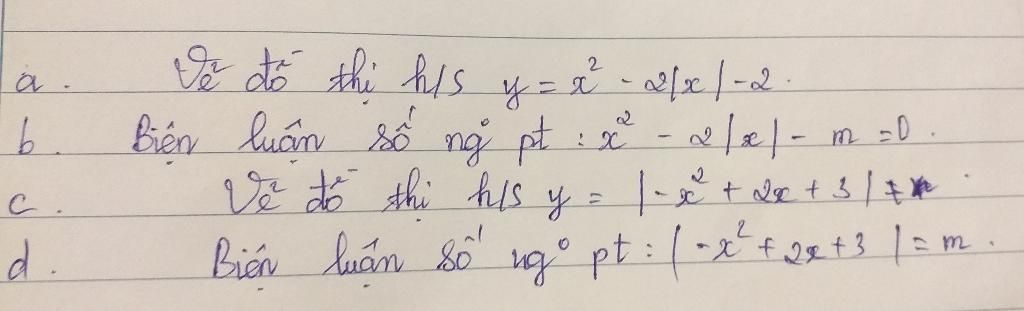 a. Vẽ đồ thị h/s y = x² - 2|x| - 2.
b. Biện luận số ng° pt : x² - 2|x| - m = 0.
c. Vẽ đồ thị h/s y = |-x² + 2x + 3|
d. Biện luận số ng° pt : |-x² + 2x + 3| = m.